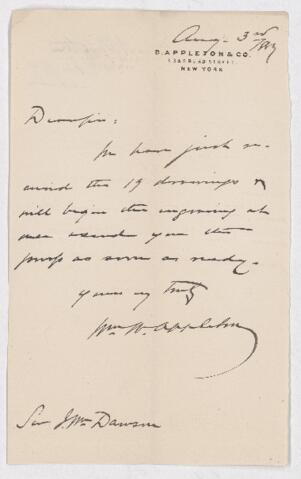 Aug. 3rd
D. APPLETON & CO.
NEW YORK
Dear Sir:
We have just re-
ceived the 19 drawings &
will begin the engraving at
once & send you the
proofs as soon as ready.
Yours very truly
Wm. W. Appleton
Sir J. Wm Dawson